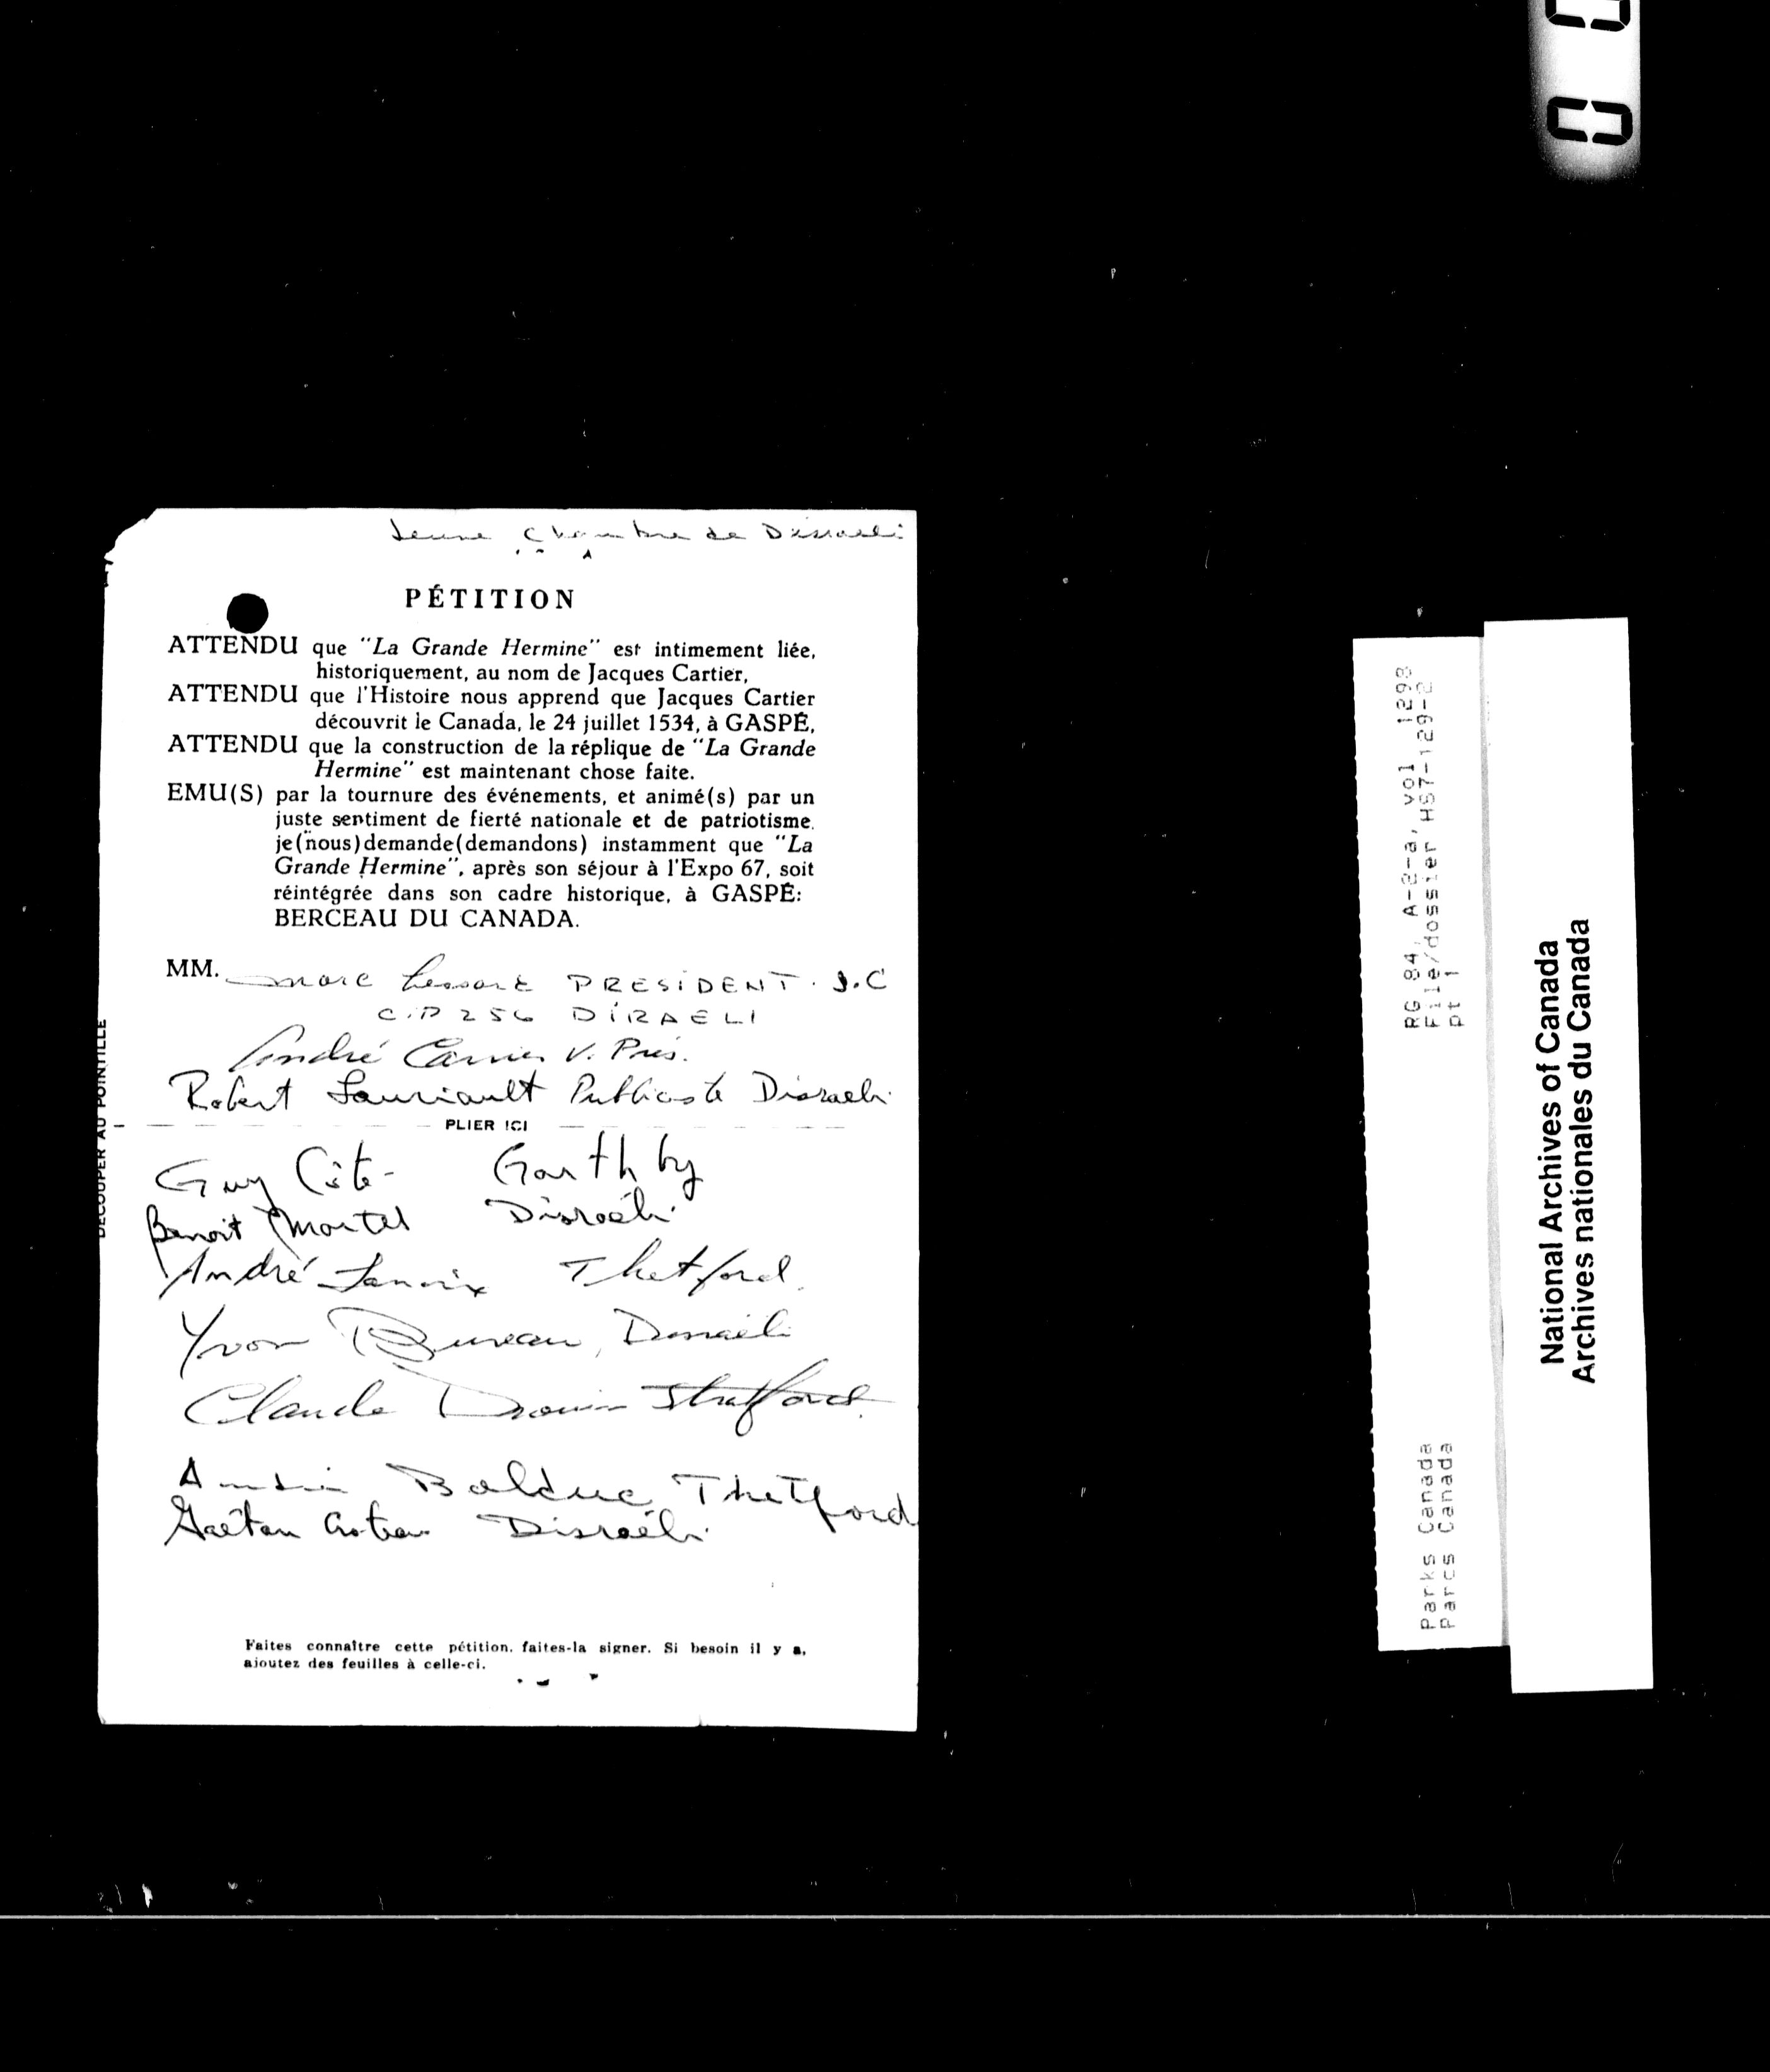 Jeune Chambre de Disraeli
PÉTITION
ATTENDU que "La Grande Hermine" est intimement liée,
historiquement, au nom de Jacques Cartier,
ATTENDU que l'Histoire nous apprend que Jacques Cartier
découvrit le Canada, le 24 juillet 1534, à GASPÉ,
ATTENDU que la construction de la réplique de "La Grande
Hermine" est maintenant chose faite.
EMU(S) par la tournure des événements, et animé(s) par un
juste sentiment de fierté nationale et de patriotisme,
je(nous)demande(demandons) instamment que "La
Grande Hermine", après son séjour à l'Expo 67, soit
réintégrée dans son cadre historique, à GASPÉ:
BERCEAU DU CANADA.
MM. Marc Lessard PRESIDENT. J.C
C.P 256 DIRAELI
André Carrier V. Prés.
Robert Lauriault Publiciste Disraeli
DÉCOUPER AU POINTILLÉ
PLIER ICI
Guy Côté Garthby
Benoit Martel Disraëli
André Lanoix Thetford
Yvon Bureau, Disraëli
Claude Drouin Stratford
Bolduc Thetford
Gaétan Croteau Disraëli
Faites connaître cette pétition, faites-la signer. Si besoin il y a,
ajoutez des feuilles à celle-ci.
RG 84, A-2-a, vol. 1298
File/dossier HS7-129-2
pt 1
Parks Canada
Parcs Canada
National Archives of Canada
Archives nationales du Canada